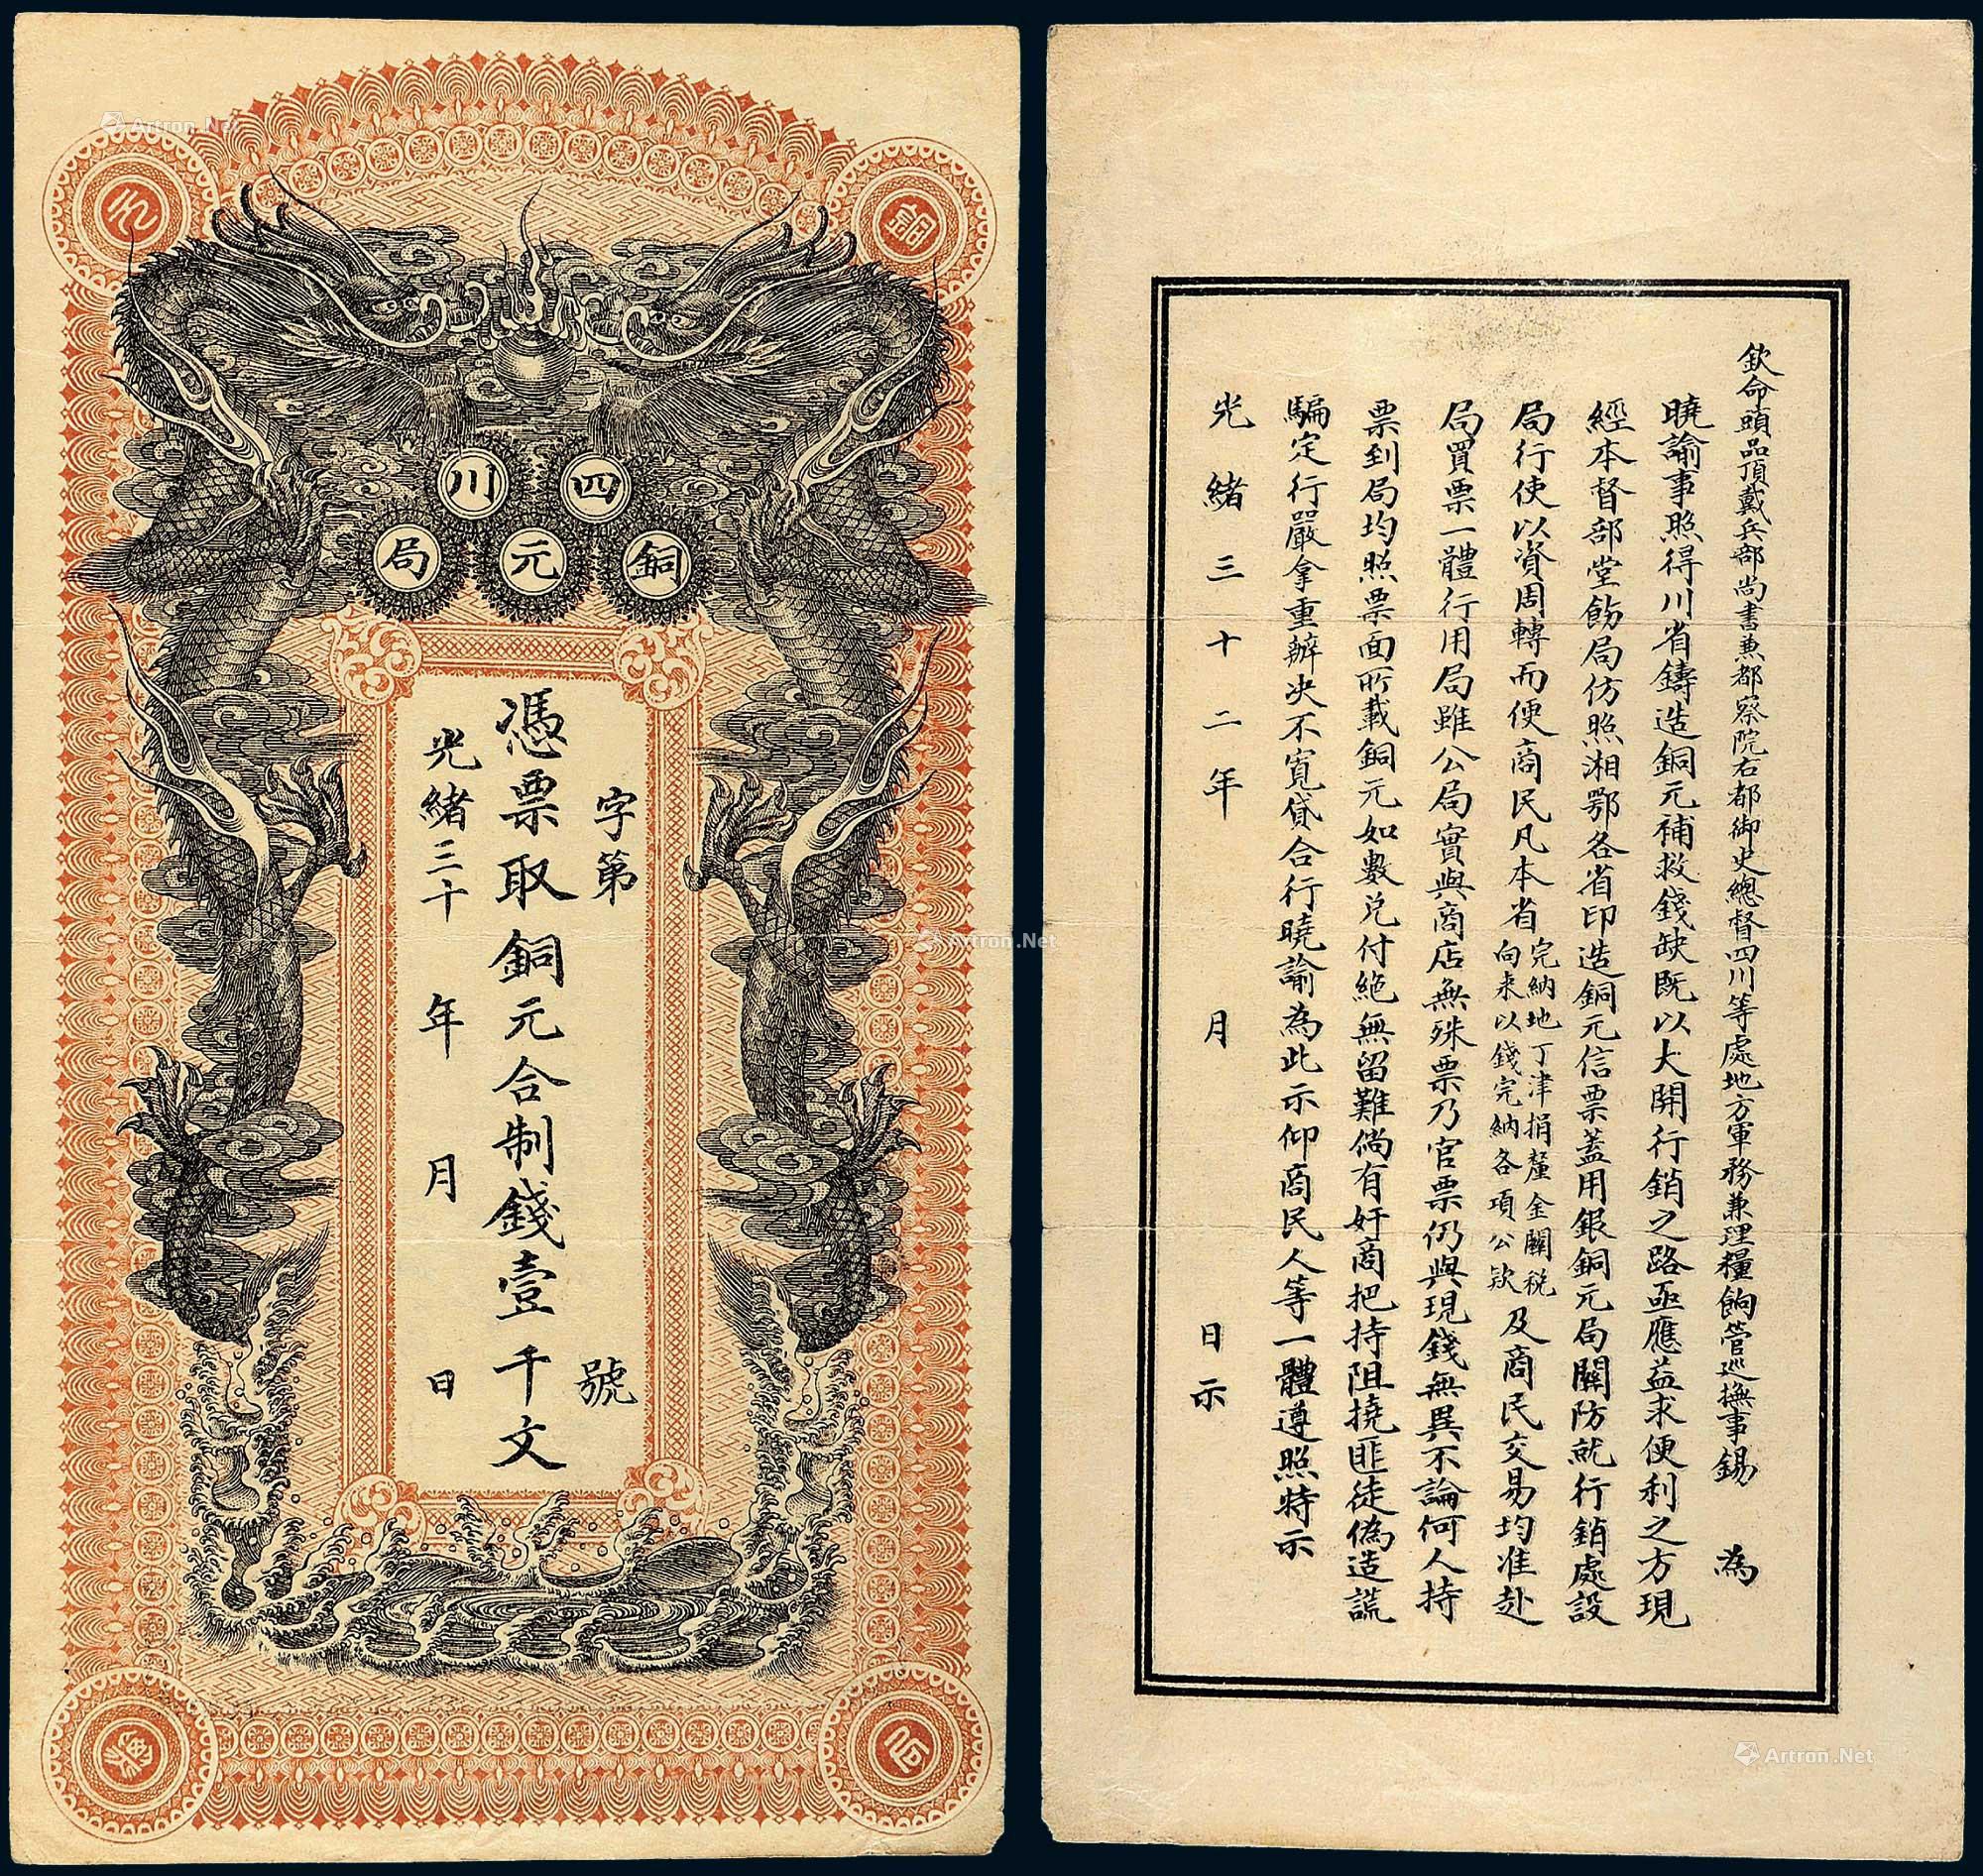 銅元
四川
銅元局
字第 號
憑票取銅元合制錢壹千文
光緒三十 年 月 日
局
票
欽命頭品頂戴兵部尚書兼都察院右都御史總督四川等處地方軍務兼理糧餉管巡撫事錫 為
曉諭事照得川省鑄造銅元補救錢缺既以大開行銷之路亟應益求便利之方現
經本督部堂飭局仿照湘鄂各省印造銅元信票蓋用銀銅元局關防就行銷處設
局行使以資周轉而便商民凡本省完納地丁津捐釐金關稅向來以錢完納各項公款及商民交易均准赴
局買票一體行用局雖公局實與商店無殊票乃官票仍與現錢無異不論何人持
票到局均照票面所載銅元如數兌付絶無留難倘有奸商把持阻撓匪徒偽造謊
騙定行嚴拿重辦決不寬貸合行曉諭為此示仰商民人等一體遵照特示
光緒三十二年 月 日示
Artron.Net
Artron.Net
Artron.Net